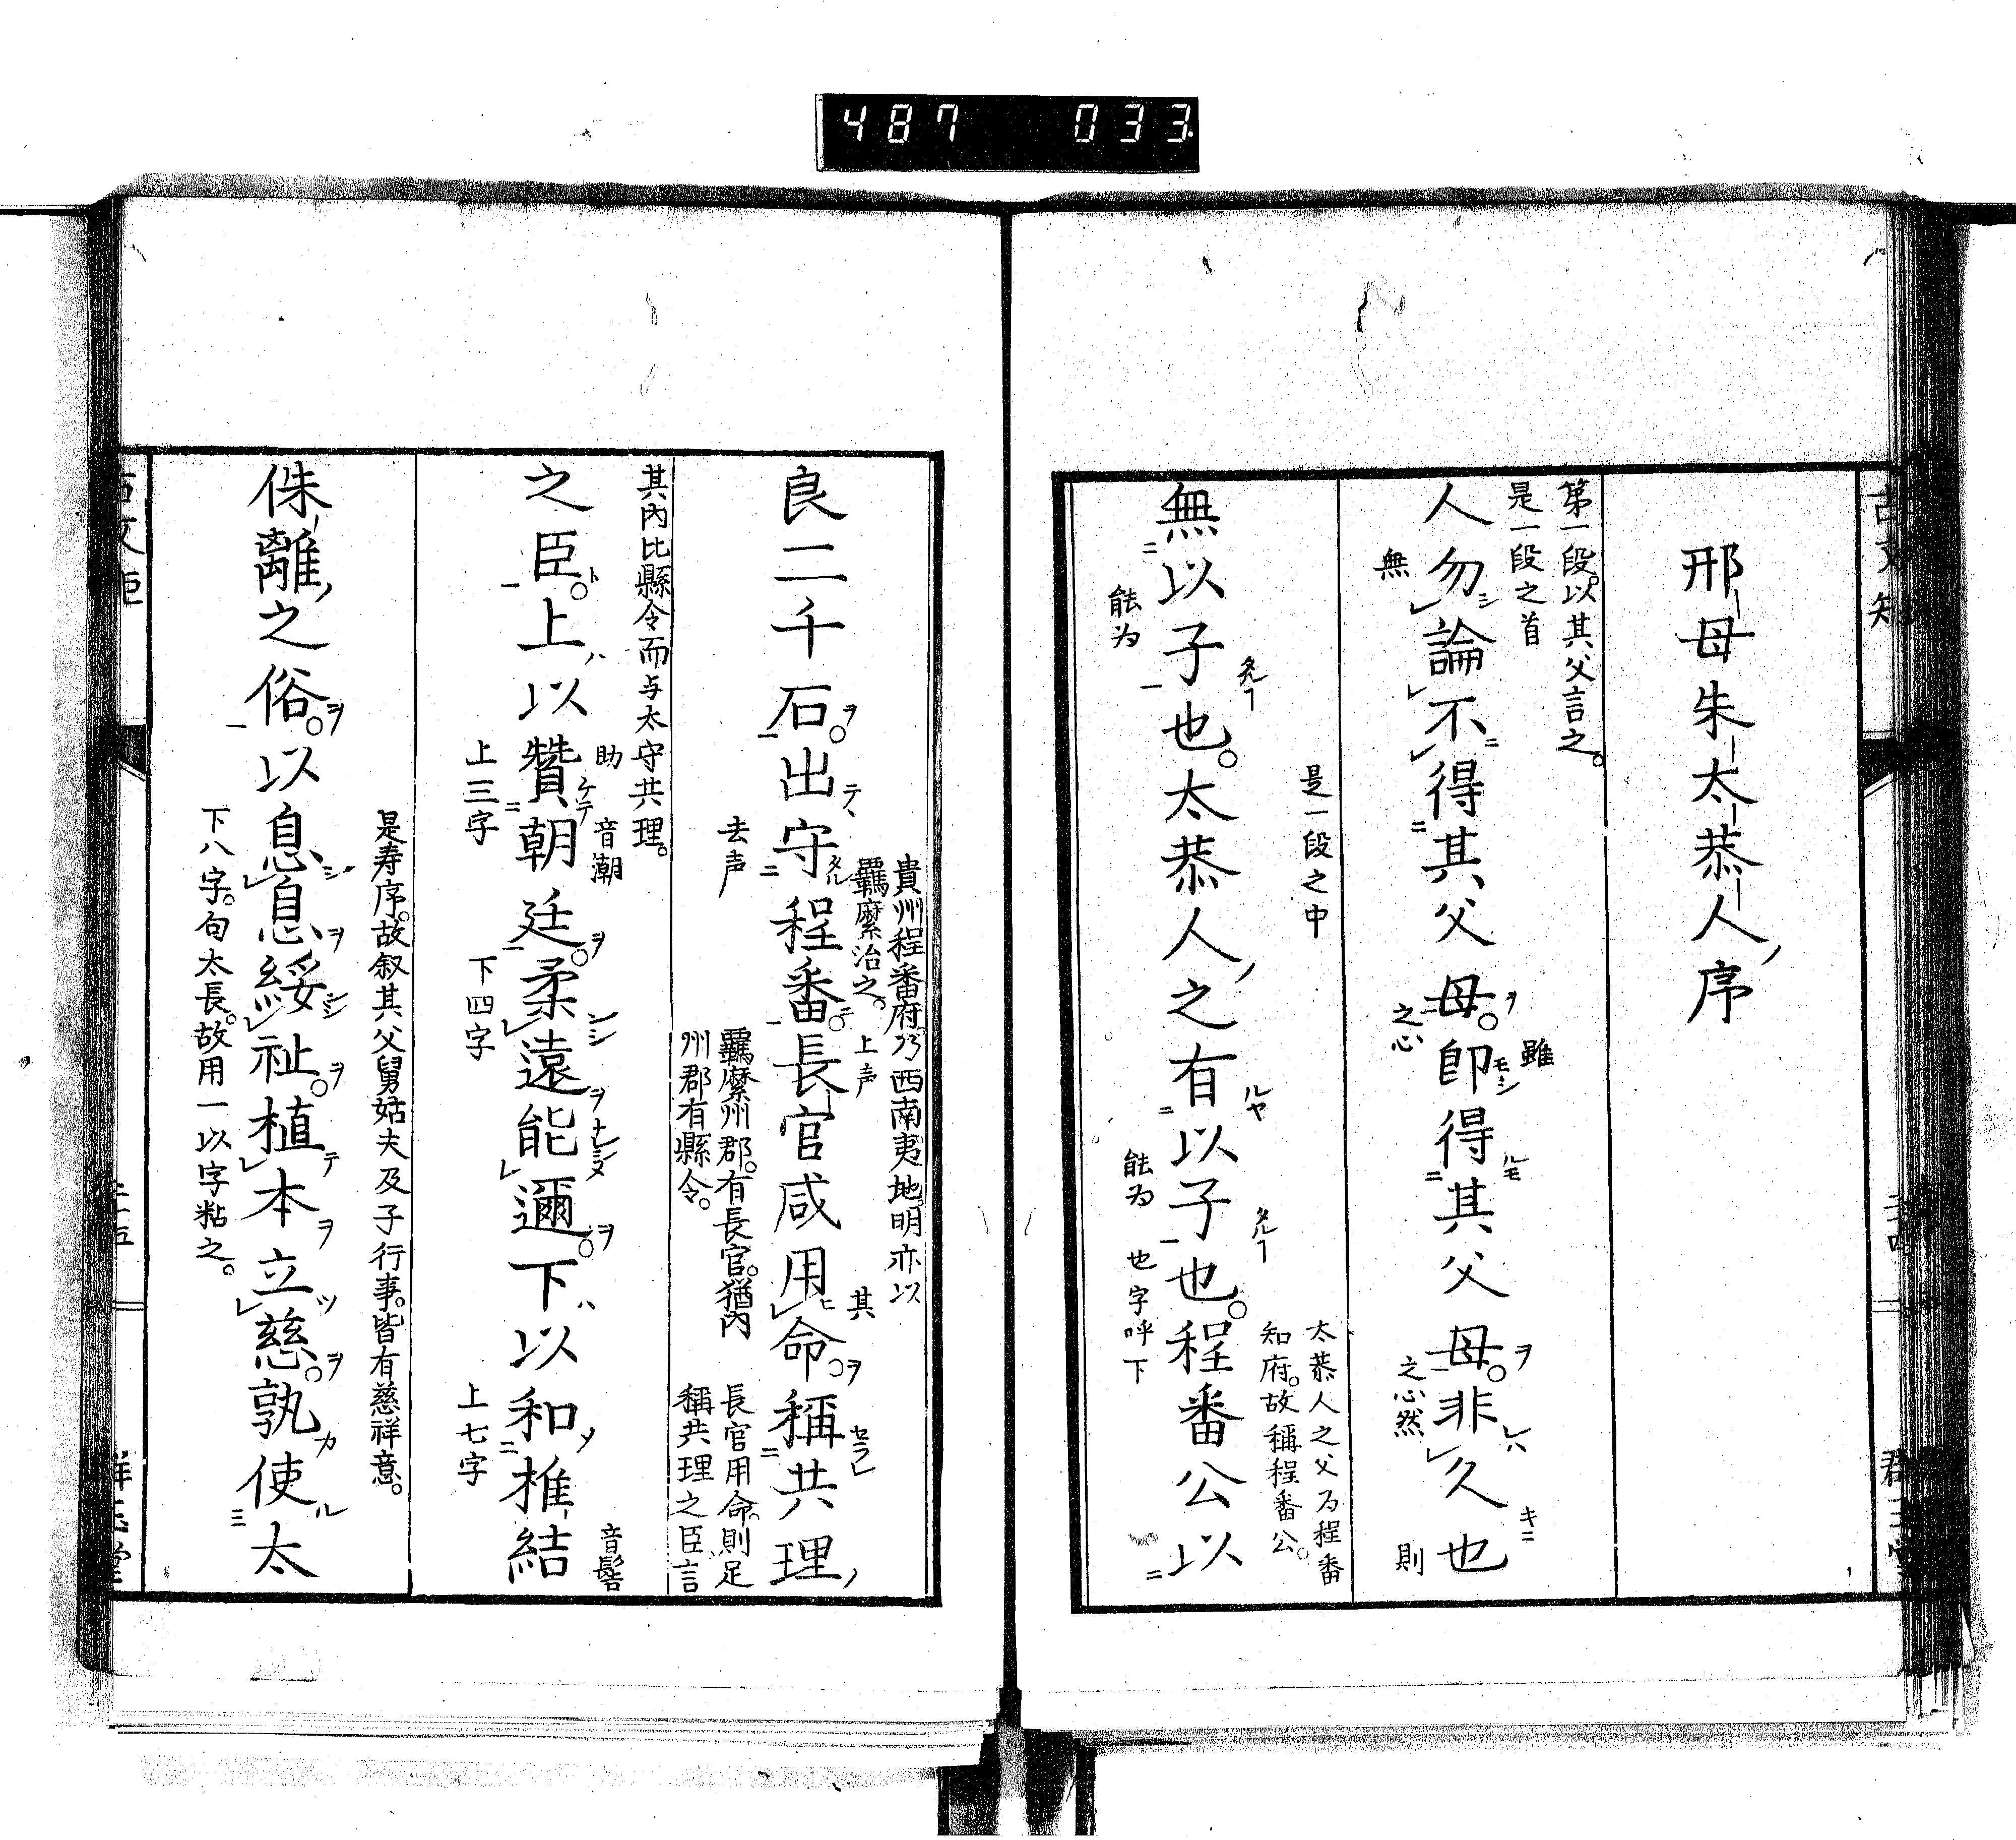 487 033
邢母朱太恭人序
第一段。以其父言之。
是一段之首
人勿論不得其父母。即得其父母。非久也
雖
無
之心
之心然
則
是一段之中
太恭人之父乃程番
知府。故稱程番公。
無以子也。太恭人之有以子也。程番公以
能為
能為
也字呼下
貴州程番府。乃西南夷地。明亦以
羈縻治之。
上声
其
良二千石。出守程番。長官咸用命。稱共理
去声
羈縻州郡。有長官。猶內
州郡有縣令。
長官用命。則足
稱共理之臣言
其內比縣令而与太守共理。
助
音潮
音髻
之臣。上以贊朝廷。柔遠能邇。下以和椎結
上三字
下四字
上七字
是寿序。故叙其父舅姑夫及子行事。皆有慈祥意。
侏離之俗。以息息綏祉。植本立慈。孰使太
下八字。句太長。故用一以字粘之。